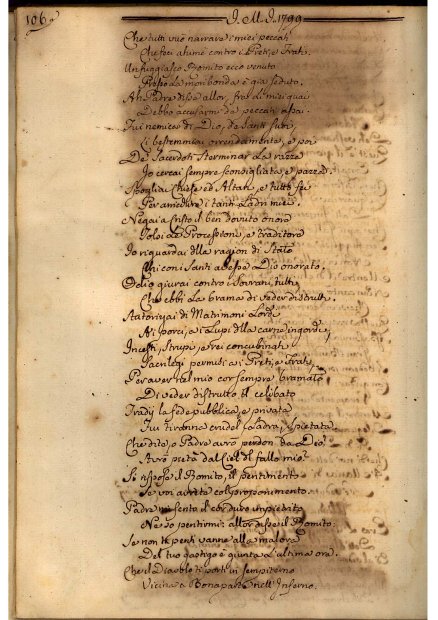 106. J. M. J. 1799
Che tutti vuò narrare i miei peccati
Che feci ahimè contro i Preti, e Frati.
Un fuggiasco Romito ecco venuto
Presso la moribonda è già seduto.
Ah Padre disse allor, fra li miei guai
Debbo accusarmi de peccati assai
Fui nemico di Dio, de Santi suoi
Li bestemmiai orrendamente, e poi
De Sacerdoti sterminar la razza
Io cercai sempre sconsigliata e pazza.
Spogliai Chiese ed Altari, e tutti fei
Per arricchire i tanti Ladri miei.
Negai a Cristo il ben dovuto onore
Tolsi le Processioni, e traditore
Io riguardai della ragion di Stato
Chi con i Santi avesse Dio onorato.
Odio giurai contro i Sovrani tutti,
Che ebbi la brama di veder distrutti.
Autorizzai di Matrimoni Lordi
Ai porci, e ai Lupi della carne ingordi,
Incesti, Strupi, e rei concubinati
Sacrilegi permisi ai Preti, e Frati,
Per aver nel mio cor sempre bramato
Di veder distrutto il celibato
Tradij la fede pubblica, e privata
Fui tiranna crudel Ladra, spietata.
Che dite, o Padre avrò perdon da Dio
Avrò pietà dal Ciel del fallo mio?
Sì rispose il Romito, il pentimento
Se voi avrete col proponimento.
Padre mi sento il cor duro impietrito
Nè so pentirmi: allor disse il Romito.
Se non ti penti vanne alla malora
Del tuo gastigo è giunta l'ultima ora.
Che il Diavolo ti porti in sempiterno
Vicina a Bonaparte nell'Inferno.